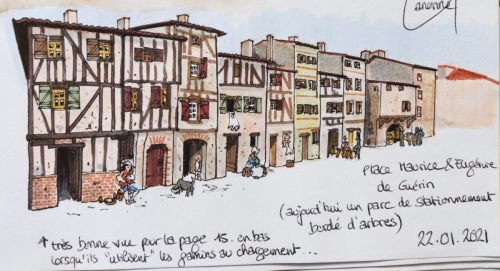 Place Maurice & Eugénie
de Guérin
(aujourd'hui un parc de stationnement
bordé d'arbres)
22.01.2021
↑ très bonne vue pour la page 15. en bas
lorsqu'ils "utilisent" les gamins au chargement...